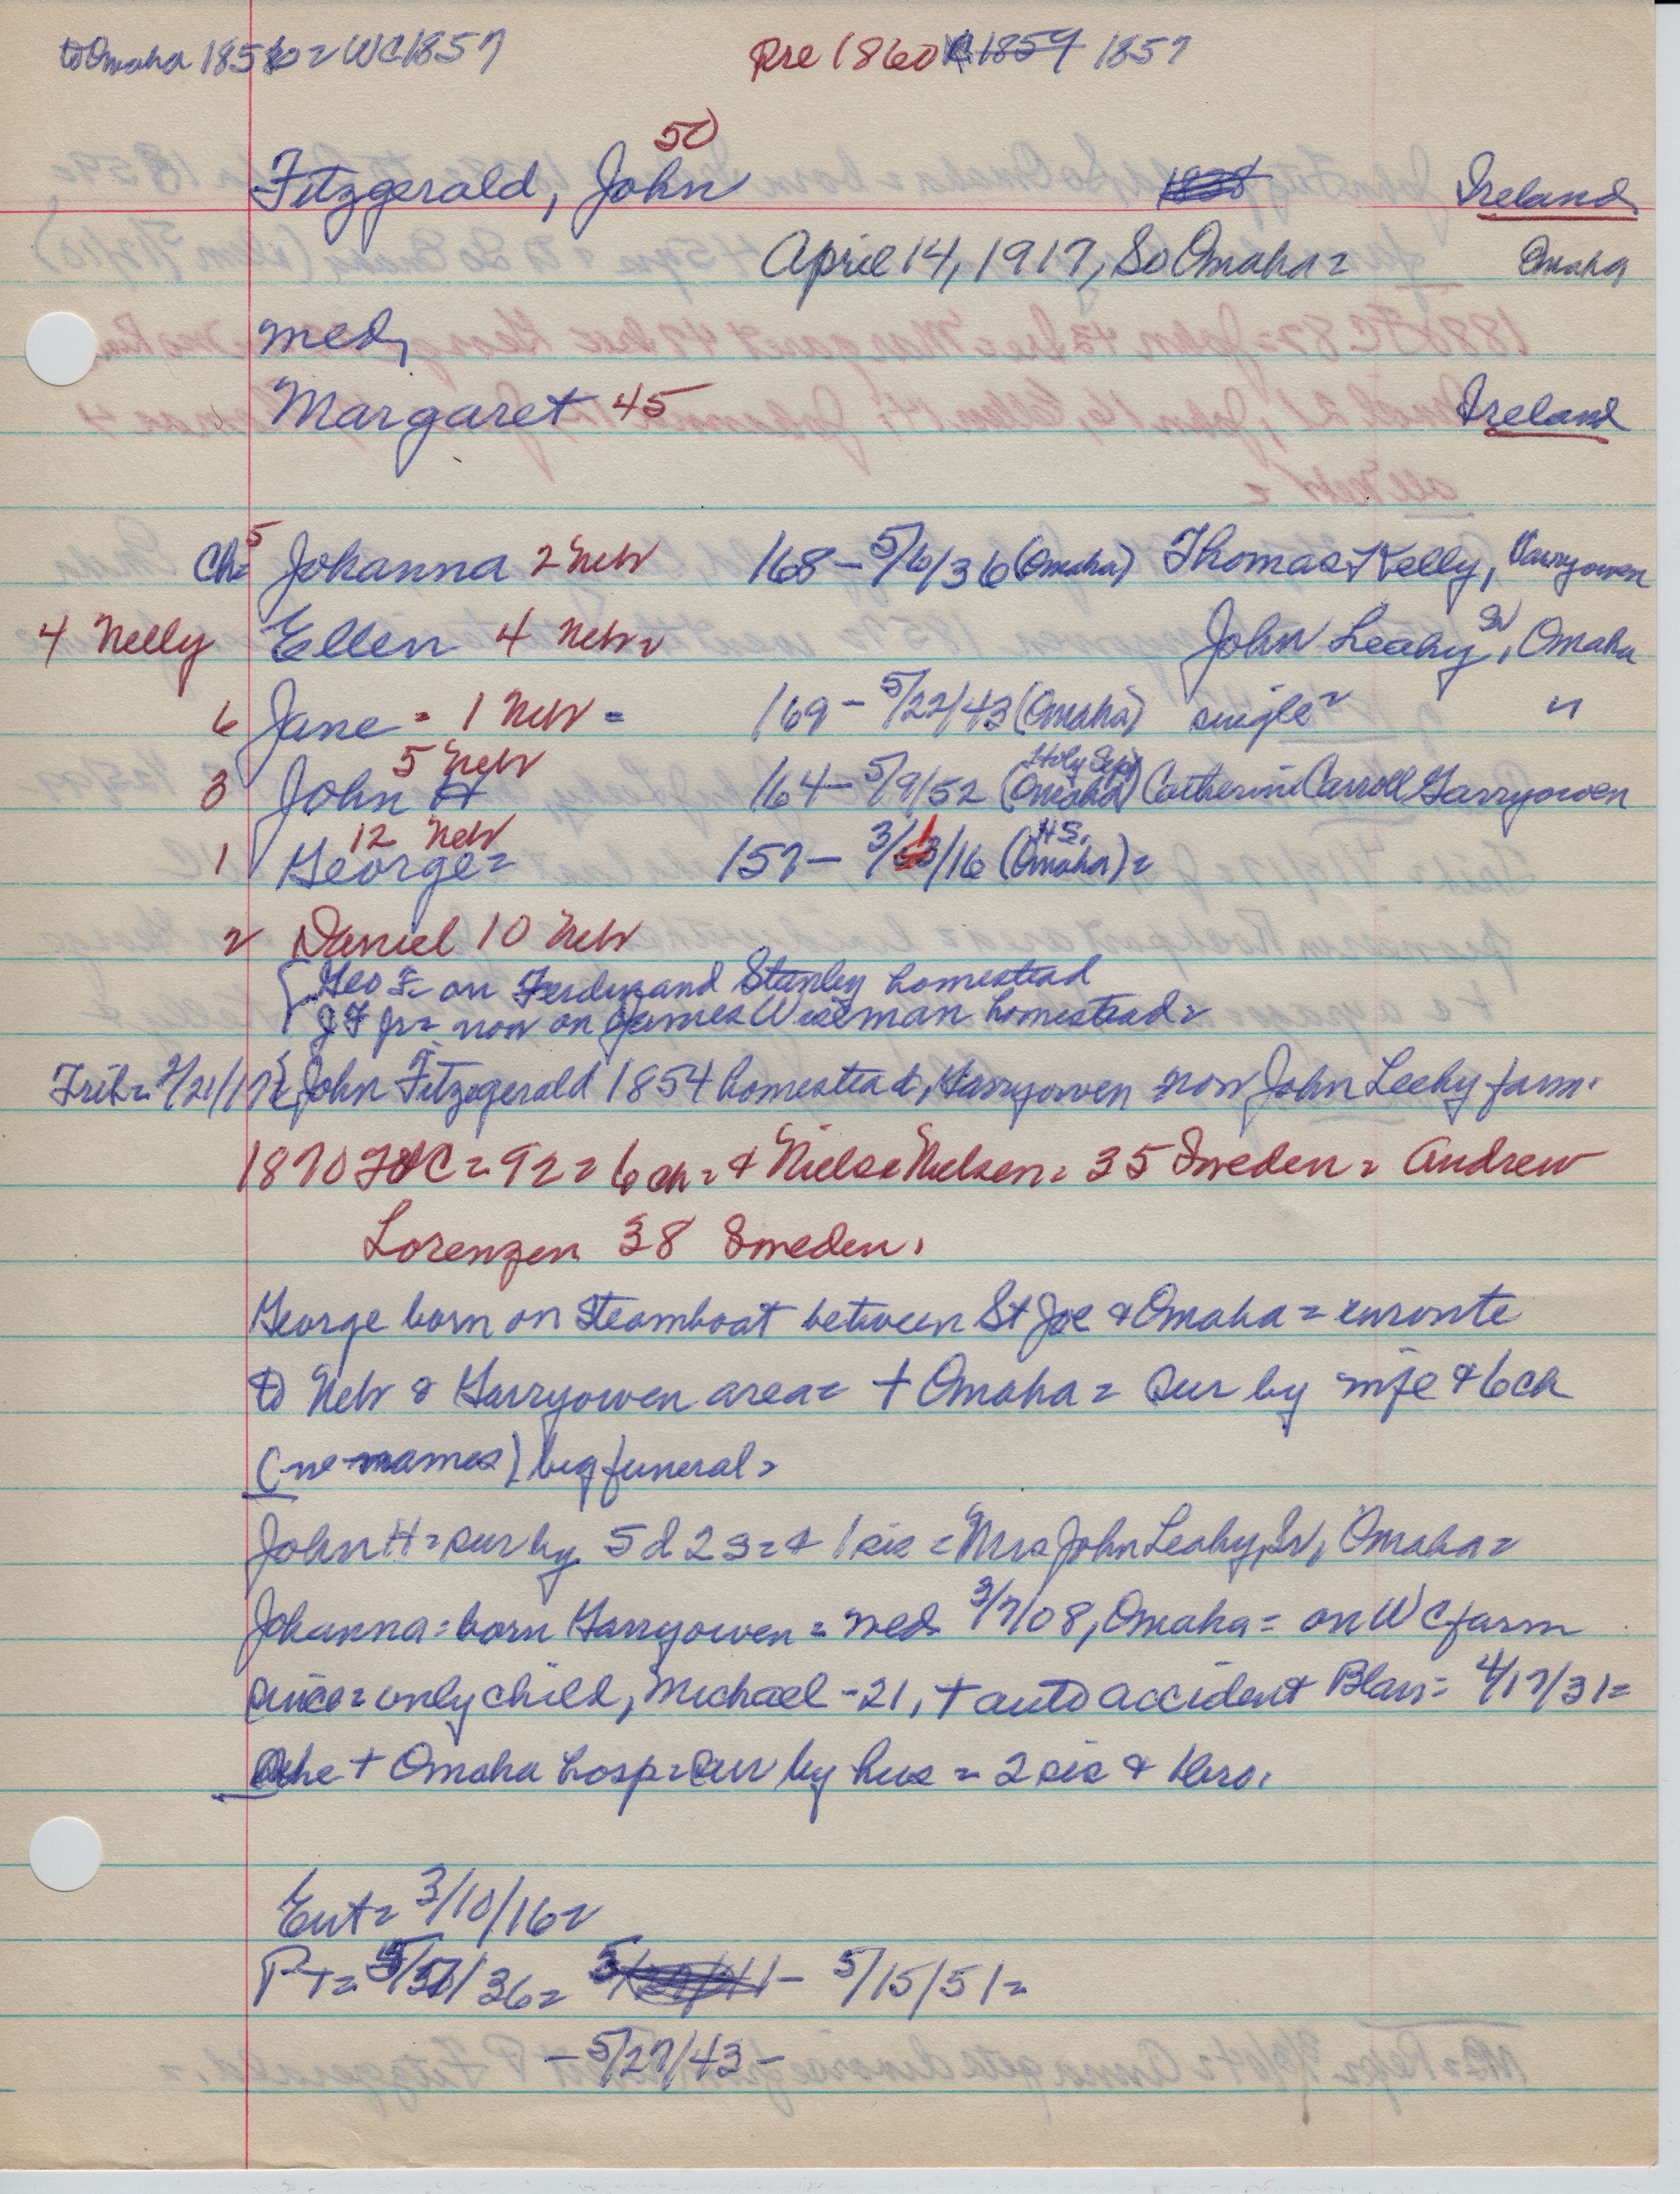 to Omaha 1856 = WC 1857
Pre 1860 1859 1857
50
Fitzgerald, John 1838 Ireland
April 14, 1917, So Omaha = Omaha
med,
Margaret 45 Ireland
Ch= 5 Johanna 2 Neb 168 - 5/6/36 (Omaha) Thomas Kelly, Garryowen
4 Nelly Ellen 4 Neb = John Leahy Sr, Omaha
6 Jane = 1 Neb = 169 - 5/22/43 (Omaha) single = "
3 John H 5 Neb 164 - 5/9/52 (Omaha) Holy Sep Catherine Carroll Garryowen
1 George = 12 Neb 157 - 3/ /16 (Omaha) = H S,
2 Daniel 10 Neb
{ Geo F= on Ferdinand Stanley homestead
J F jr= now on James Wiseman homestead =
Trib= 2/21/17 { John F. Fitzgerald 1854 homestead, Garryowen now John Leahy farm.
1870 C = 92 = 6 ch = + Niels Nielsen = 35 Sweden = Andrew
Lorenzen 38 Sweden.
George born on steamboat between St Joe & Omaha = enroute
to Neb & Garryowen area = + Omaha = sur by wife & 6 ch
(no names) big funeral =
John H = sur by 5 d 2 s = + 1 sis = Mrs John Leahy, Sr, Omaha =
Johanna = born Garryowen = med 3/7/08, Omaha = on WC farm
since = only child, Michael - 21, + auto accident Blair = 4/17/31 =
She + Omaha hosp = sur by hus = 2 sis & bro.
Ent = 3/10/16 =
PT = 36 = 5/ - 5/15/51 =
- 5/27/43 -